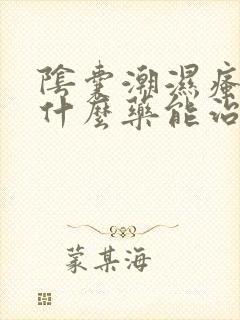 陰囊潮濕瘙
什麼藥能治
蒙某海